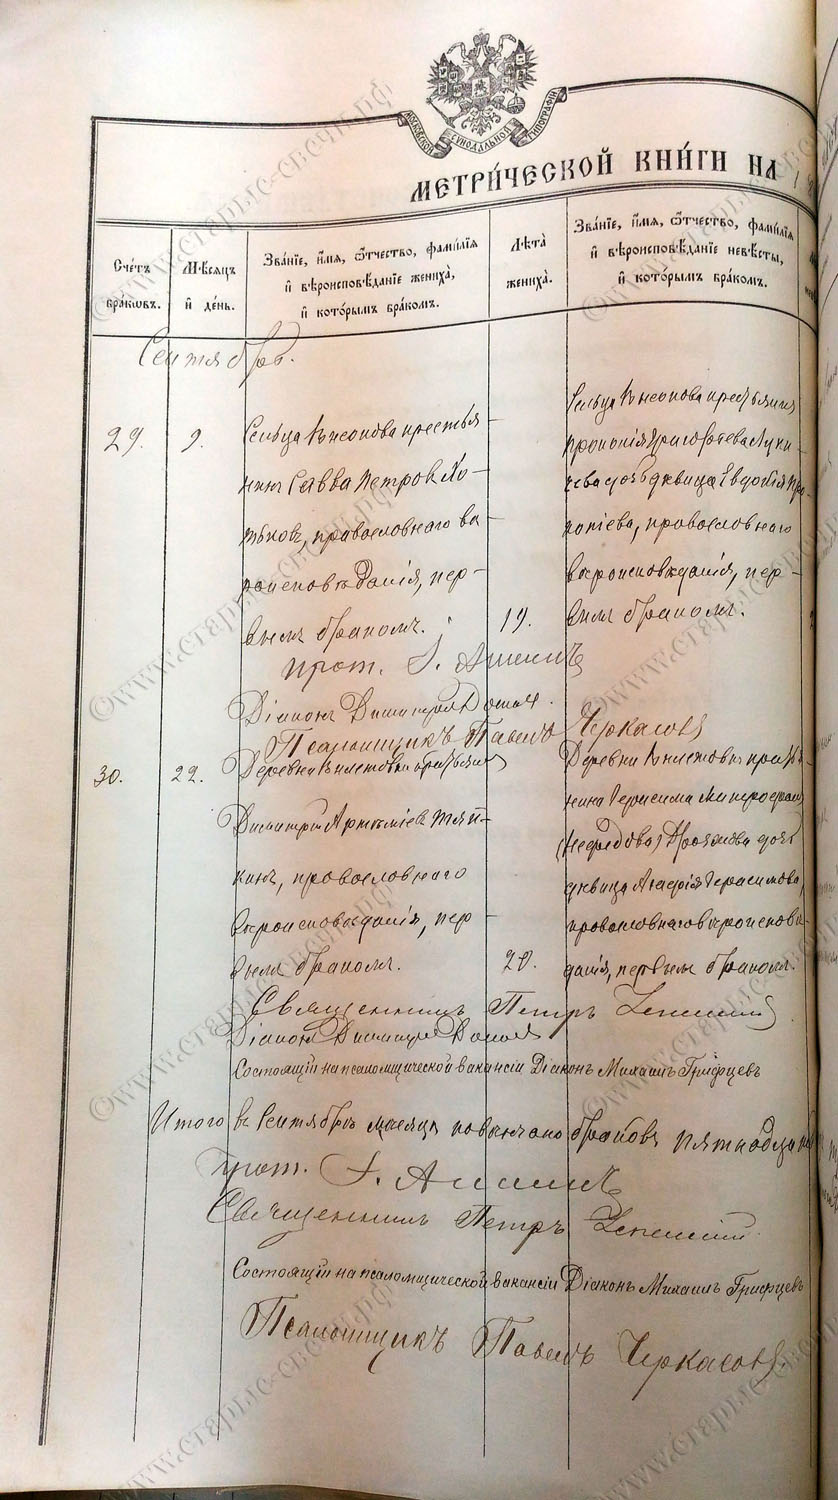 МОСКОВСКОЙ СѴНОДАЛЬНОЙ ТИПОГРАФІИ
МЕТРИ́ЧЕСКОЙ КНИ́ГИ НА 1
Сче́тъ бра́ковъ.
Мѣ́сяцъ и де́нь.
Зва́ніе, и́мя, ѻ́тчество, фами́лія и вѣроисповѣ́даніе жениха́, и кото́рымъ бра́комъ.
Лѣ́та жениха́.
Зва́ніе, и́мя, ѻ́тчество, фами́лія и вѣроисповѣ́даніе невѣ́сты, и кото́рымъ бра́комъ.
Сентябрь.
29.
9.
Сельца крестья
нинъ Савва Петровъ Хо-
тьковъ, православнаго вѣ-
роисповѣданія, пер-
вымъ бракомъ.
19.
Сельца крестьянина
Прокопія Григорьева
дочь дѣвица Евдокія Про-
копіева, православнаго
вѣроисповѣданія, пер-
вымъ бракомъ.
Прот. І.
Діаконъ Димитрій
Псаломщикъ Павелъ Черкасовъ
30.
22.
Деревни крестьянинъ
Димитрій Артеміевъ Тяп-
кинъ, православнаго
вѣроисповѣданія, пер
вымъ бракомъ.
20.
Деревни крестья
нина Герасима Митрофан
дочь
дѣвица Герасимова,
православнаго вѣроисповѣ-
данія, первымъ бракомъ.
Священникъ Петръ Успенскій
Діаконъ Димитрій
Состоящій на псаломщической вакансіи Діаконъ Михаилъ Грифцевъ
Итого въ Сентябрѣ мѣсяцѣ повѣнчано браковъ пятнадца
Прот. І.
Священникъ Петръ Успенскій.
Состоящій на псаломщической вакансіи Діаконъ Михаилъ Грифцевъ
Псаломщикъ Павелъ Черкасовъ.
©www.старые-свечи.рф